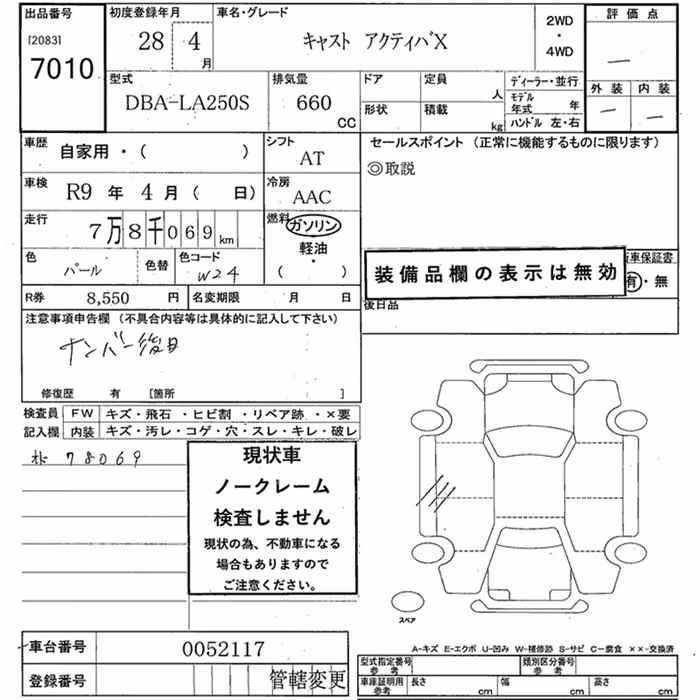 出品番号
[2083]
7010
初度登録年月
28 4
月
車名・グレード
キャスト アクティバX
2WD
・
4WD
評価点
―
外装 内装
― ―
型式
DBA-LA250S
排気量
660
CC
ドア 定員
人
形状 積載
kg
ディーラー・並行
モデル
年式 年
ハンドル 左・右
車歴 自家用・( )
シフト
AT
車検 R9 年 4 月 ( 日)
冷房
AAC
走行 7万8千069km
燃料 ガソリン
軽油・
( )
色 パール 色替
色コード
W24
R券 8,550 円
名変期限 月 日
セールスポイント (正常に機能するものに限ります)
◎取説
装備品欄の表示は無効
車保証書
有・無
後日品
注意事項申告欄 (不具合内容等は具体的に記入して下さい)
ナンバー後日
修復歴 有 [箇所 ]
検査員
記入欄
FW キズ・飛石・ヒビ割・リペア跡・×要
内装 キズ・汚レ・コゲ・穴・スレ・キレ・破レ
78069
現状車
ノークレーム
検査しません
現状の為、不動車になる
場合もありますので
ご注意ください。
スペア
A-キズ E-エクボ U-凹み W-補修跡 S-サビ C-腐食 ××-交換済
車台番号 0052117
登録番号 管轄変更
型式指定番号
参考
類別区分番号
参考
車庫証明用
参考
長さ cm 幅 cm 高さ cm